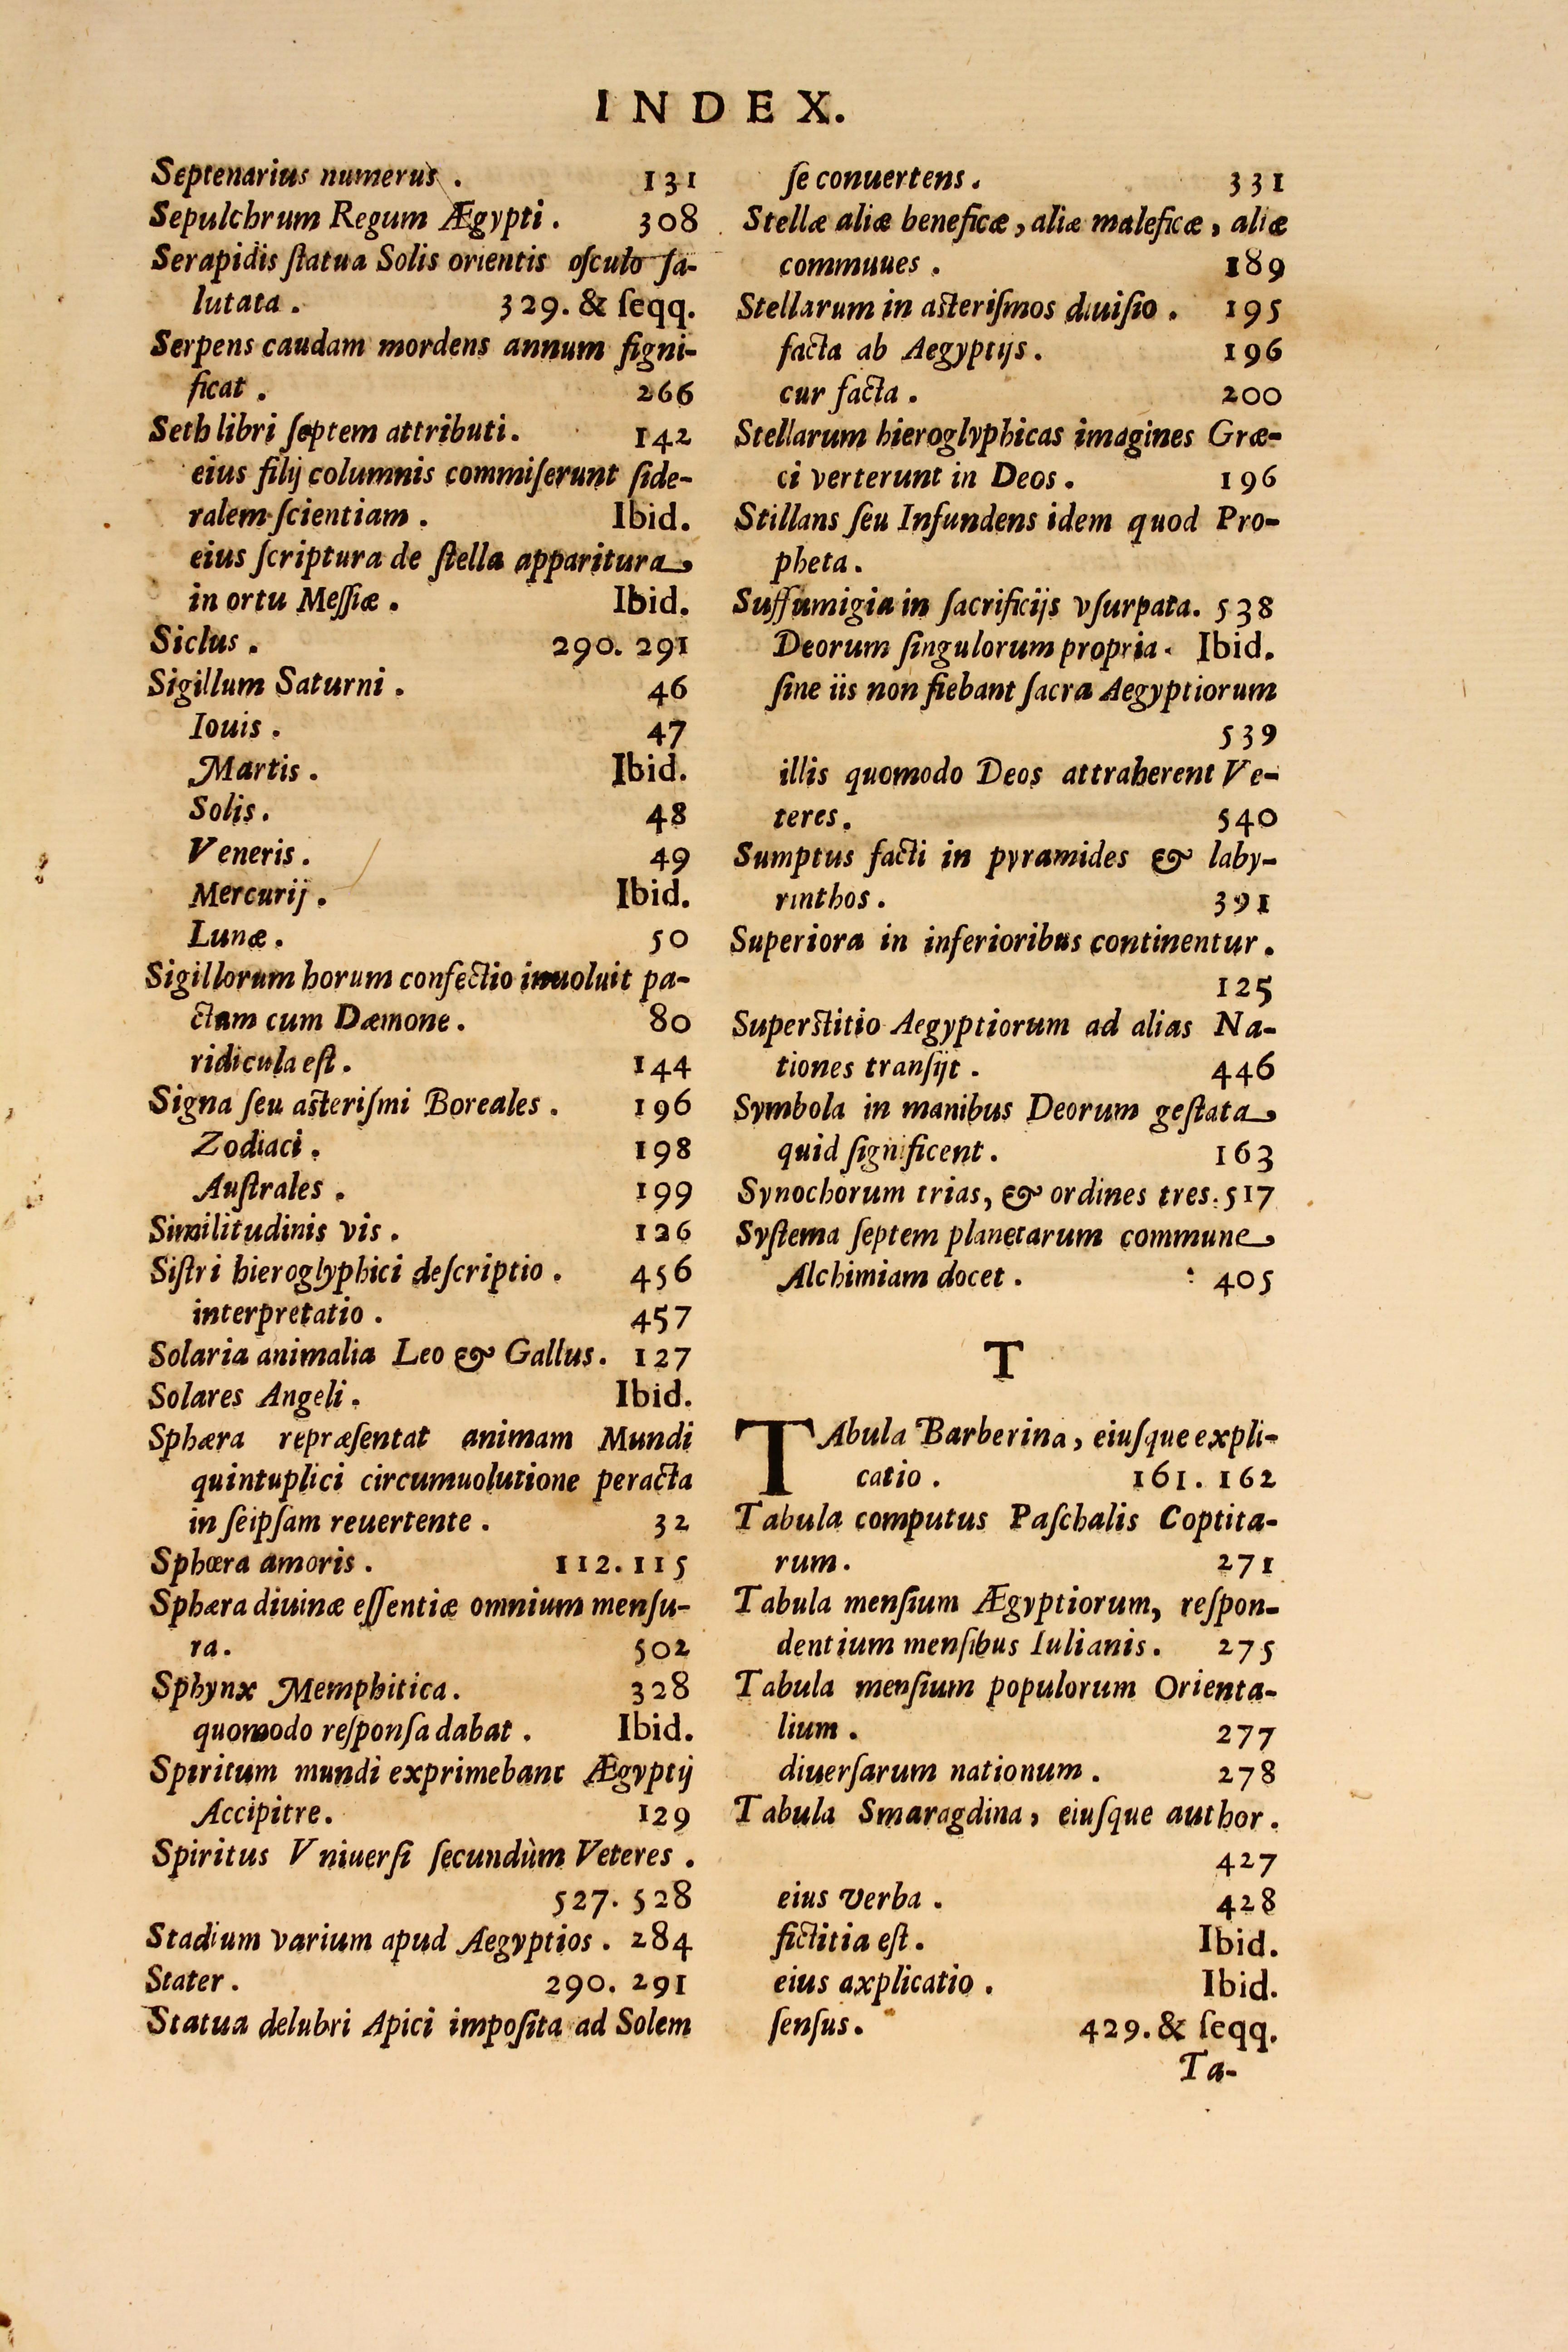 INDEX.
Septenarius numerus . 131
Sepulchrum Regum Ægypti . 308
Serapidis ſtatua Solis orientis oſculo ſa-
lutata . 329. & ſeqq.
Serpens caudam mordens annum ſigni-
ficat . 266
Seth libri ſeptem attributi . 142
eius filij columnis commiſerunt ſide-
ralem ſcientiam . Ibid.
eius ſcriptura de ſtella apparitura
in ortu Meſſiæ . Ibid.
Siclus . 290. 291
Sigillum Saturni . 46
Iouis . 47
Martis . Ibid.
Solis . 48
Veneris . 49
Mercurij . Ibid.
Lunæ . 50
Sigillorum horum confectio inuoluit pa-
ctum cum Dæmone . 80
ridicula eſt . 144
Signa ſeu aſteriſmi Boreales . 196
Zodiaci . 198
Auſtrales . 199
Similitudinis vis . 126
Siſtri hieroglyphici deſcriptio . 456
interpretatio . 457
Solaria animalia Leo & Gallus . 127
Solares Angeli . Ibid.
Sphæra repræſentat animam Mundi
quintuplici circumuolutione peracta
in ſeipſam reuertente . 32
Sphœra amoris . 112. 115
Sphæra diuinæ eſſentiæ omnium menſu-
ra. 502
Sphynx Memphitica . 328
quomodo reſponſa dabat . Ibid.
Spiritum mundi exprimebant Ægyptij
Accipitre. 129
Spiritus Vniuerſi ſecundùm Veteres .
527. 528
Stadium varium apud Aegyptios . 284
Stater . 290. 291
Statua delubri Apici impoſita ad Solem
ſe conuertens . 331
Stellæ aliæ beneficæ, aliæ maleficæ, aliæ
commuues . 189
Stellarum in aſteriſmos diuiſio . 195
facta ab Aegyptijs . 196
cur facta . 200
Stellarum hieroglyphicas imagines Græ-
ci verterunt in Deos . 196
Stillans ſeu Infundens idem quod Pro-
pheta .
Suffumigia in ſacrificijs vſurpata. 538
Deorum ſingulorum propria . Ibid.
ſine iis non fiebant ſacra Aegyptiorum
539
illis quomodo Deos attraherent Ve-
teres. 540
Sumptus facti in pyramides & laby-
rinthos . 391
Superiora in inferioribus continentur .
125
Superſtitio Aegyptiorum ad alias Na-
tiones tranſijt . 446
Symbola in manibus Deorum geſtata
quid ſignificent . 163
Synochorum trias, & ordines tres. 517
Syſtema ſeptem planetarum commune
Alchimiam docet . 405
T
TAbula Barberina, eiuſque expli-
catio . 161. 162
Tabula computus Paſchalis Coptita-
rum. 271
Tabula menſium Ægyptiorum, reſpon-
dentium menſibus Iulianis . 275
Tabula menſium populorum Orienta-
lium . 277
diuerſarum nationum . 278
Tabula Smaragdina, eiuſque author .
427
eius verba . 428
fictitia eſt . Ibid.
eius axplicatio . Ibid.
ſenſus . 429. & ſeqq.
Ta-